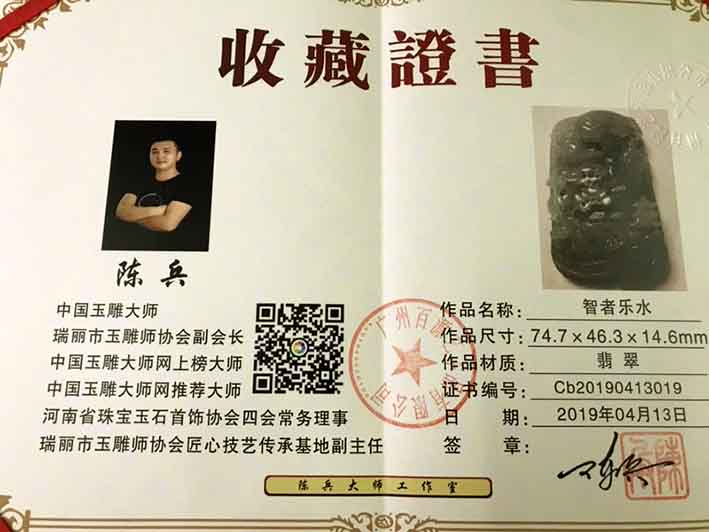 收藏證書
陈兵
中国玉雕大师
瑞丽市玉雕师协会副会长
中国玉雕大师网上榜大师
中国玉雕大师网推荐大师
河南省珠宝玉石首饰协会四会常务理事
瑞丽市玉雕师协会匠心技艺传承基地副主任
作品名称：智者乐水
作品尺寸：74.7×46.3×14.6mm
作品材质：翡翠
证书编号：Cb20190413019
日期：2019年04月13日
签章：
陈兵大师工作室